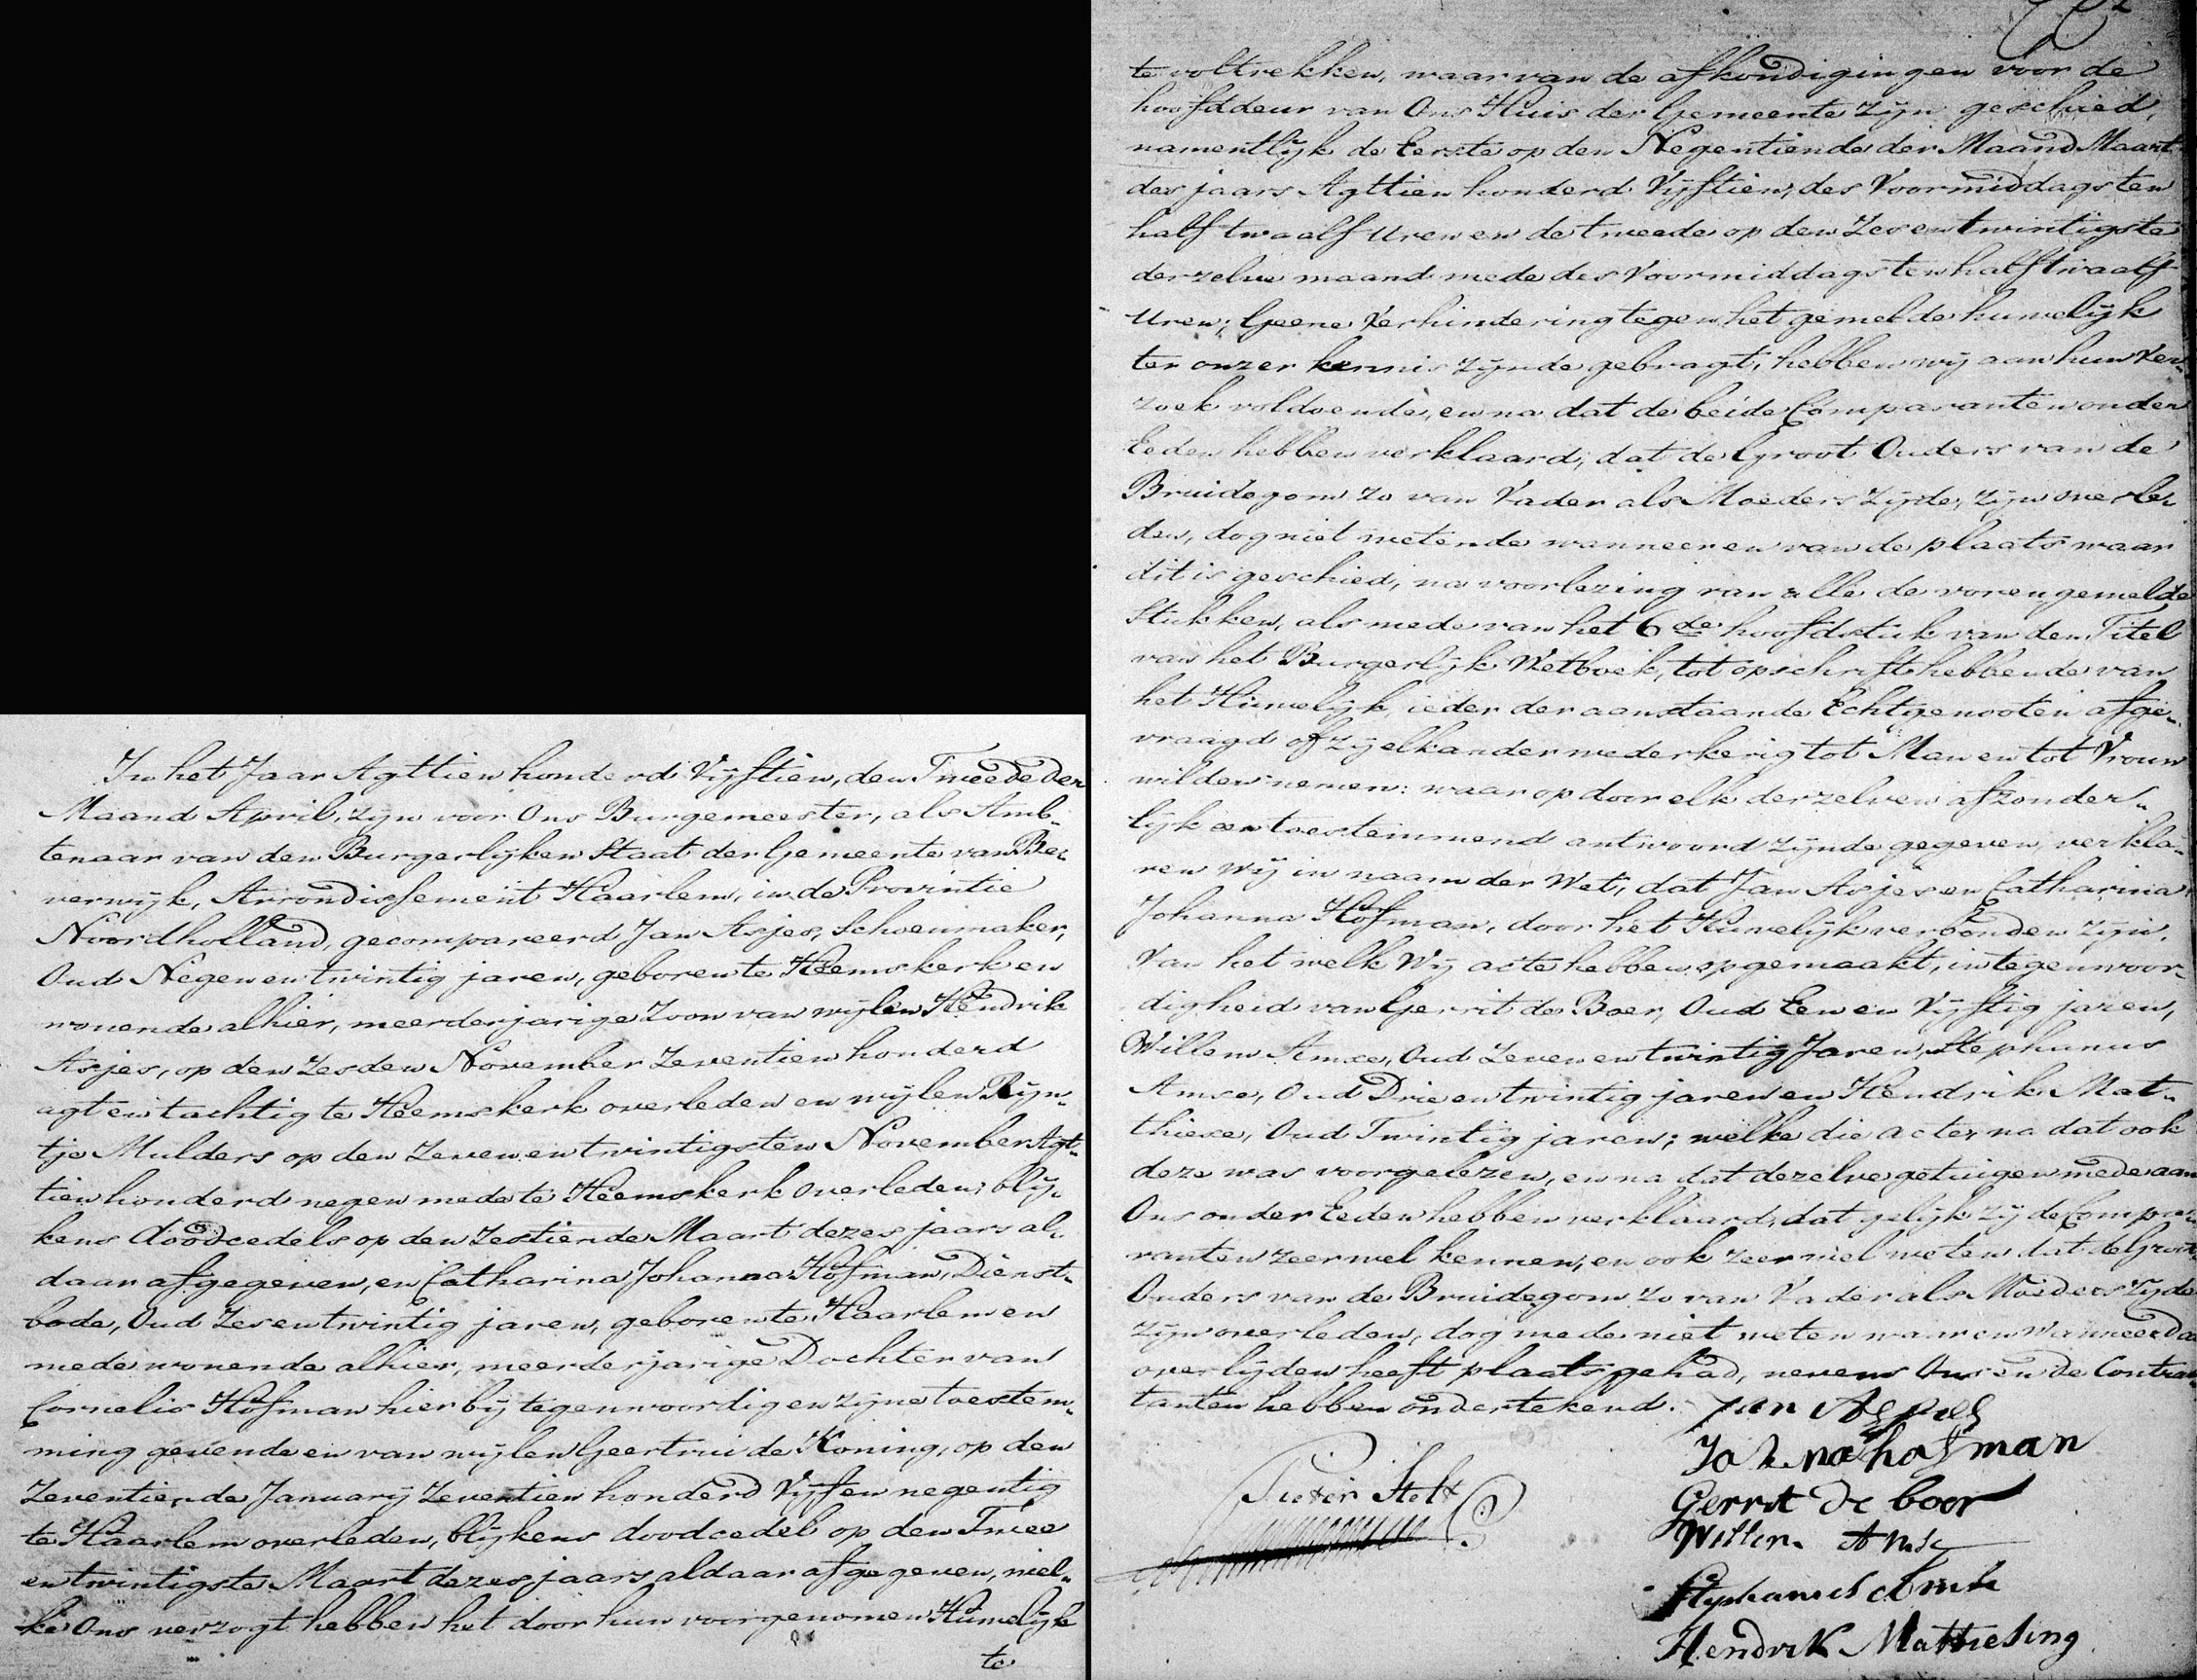 In het Jaar Agttien honderd Vijftien, den Tweede der
Maand April, zijn voor Ons Burgemeester, als Amb„
tenaar van den Burgerlijken Staat der Gemeente van Be„
verwijk, Arrondissement Haarlem, in de Provintie
Noordholland, gecompareerd Jan Asjes, Schoenmaker,
Oud Negen en twintig jaren, geboren te Heemskerk en
wonende alhier, meerderjarige Zoon van wijlen Hendrik
Asjes, op den Zesden November Zeventien honderd
agt en tachtig te Heemskerk overleden en wijlen Rijn„
tje Mulders op den Zeven en twintigsten November Agt„
tien honderd negen mede te Heemskerk Overleden; blij„
kens doodcedels op den Zestiende Maart dezes jaars al„
daar afgegeven, en Catharina Johanna Hofman, Dienst„
bode, Oud Zes en twintig jaren, geboren te Haarlem en
mede wonende alhier, meerderjarige Dochter van
Cornelis Hofman hier bij tegenwoordig en zijne toestem„
ming gevende en van wijlen Geertrui de Koning, op den
Zeventiende January Zeventien honderd Vijf en negentig
te Haarlem overleden, blijkens doodcedel op den Twee
en twintigste Maart dezes jaars aldaar afgegeven, wel„
ke Ons verzogt hebben het door hun voorgenomen Huwelijk
te
te voltrekken, waar van de afkondigingen voor de
hoofddeur van Ons Huis der Gemeente zijn geschied,
namentlijk de Eerste op den Negentiende der Maand Maart
des jaars Agttien honderd Vijftien, des Voormiddags ten
half twaalf Uren en de tweede op den Zes en twintigste
derzelve maand mede des Voormiddags ten half twaalf
Uren; Geene Verhindering tegen het gemelde huwelijk
ter onzer kennis zijnde gebragt, hebben wij aan hun Ver„
zoek voldoende, en na dat de beide Comparanten onder
Eeden hebben verklaard, dat de Groot Ouders van de
Bruidegom zo van Vader als Moeders zijde, zijn overle„
den, dog niet wetende wanneer en van de plaats waar
dit is geschied, na voorlezing van alle de vorengemelde
Stukken, als mede van het 6de hoofdstuk van den Titel
van het Burgerlijk Wetboek, tot opschrift hebbende van
het Huwelijk, ieder der aanstaande Echtgenooten afge„
vraagd of zij elkander wederkerig tot Man en tot Vrouw
wilden nemen: waar op door elk derzelven afzonder„
lijk een toestemmend antwoord zijnde gegeven, verkla„
ren Wij in naam der Wet, dat Jan Asjes en Catharina
Johanna Hofman, door het Huwelijk verbonden zijn.
Van het welk Wij acte hebben opgemaakt, in tegenwoor„
digheid van Gerrit de Boer, Oud Een en Vijftig jaren,
Willem Amse, Oud Zeven en twintig Jaren, Stephanus
Amse, Oud Drie en twintig jaren en Hendrik Mat„
thiese, Oud Twintig jaren; welke die acte, na dat ook
deze was voorgelezen, en na dat dezelve getuigen mede aan
Ons onder Eeden hebben verklaard, dat gelijk zij de Compa„
ranten zeer wel kennen, en ook zeer wel weten dat de Groot
Ouders van de Bruidegom zo van Vader als Moeders zijde
zijn overleden, dog mede niet weten waar en wanneer dat
overlijden heeft plaats gehad, nevens Ons en de Contrac„
tanten hebben ondertekend. Jan Asjes
Johana hofman
Pieter Stolt
Gerrit de boer
Willem Amse
Stephanus Amse
Hendrik Mattiesing